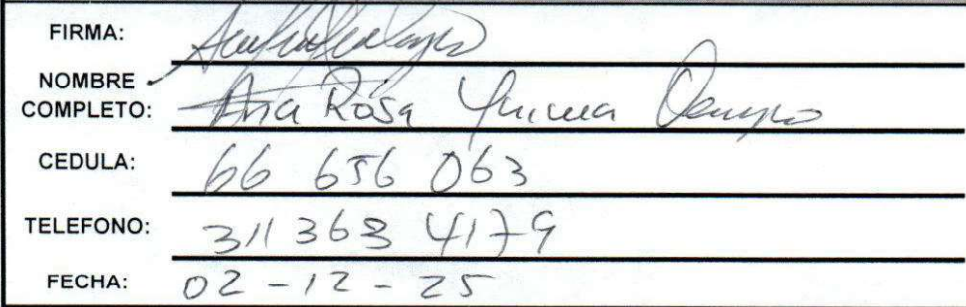 FIRMA:
NOMBRE
COMPLETO: Ana Rosa
CEDULA: 66 656 063
TELEFONO: 311 363 4179
FECHA: 02-12-25